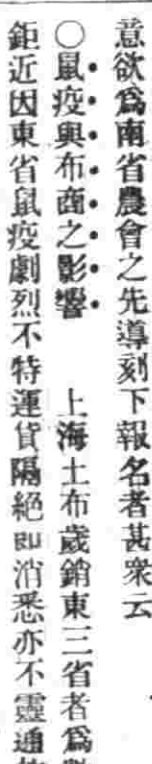 意欲爲南省農會之先導刻下報名者甚衆云
○鼠疫與布商之影響　上海土布歲銷東三省者爲數
鉅近因東省鼠疫劇烈不特運貨隔絕卽消悉亦不靈通